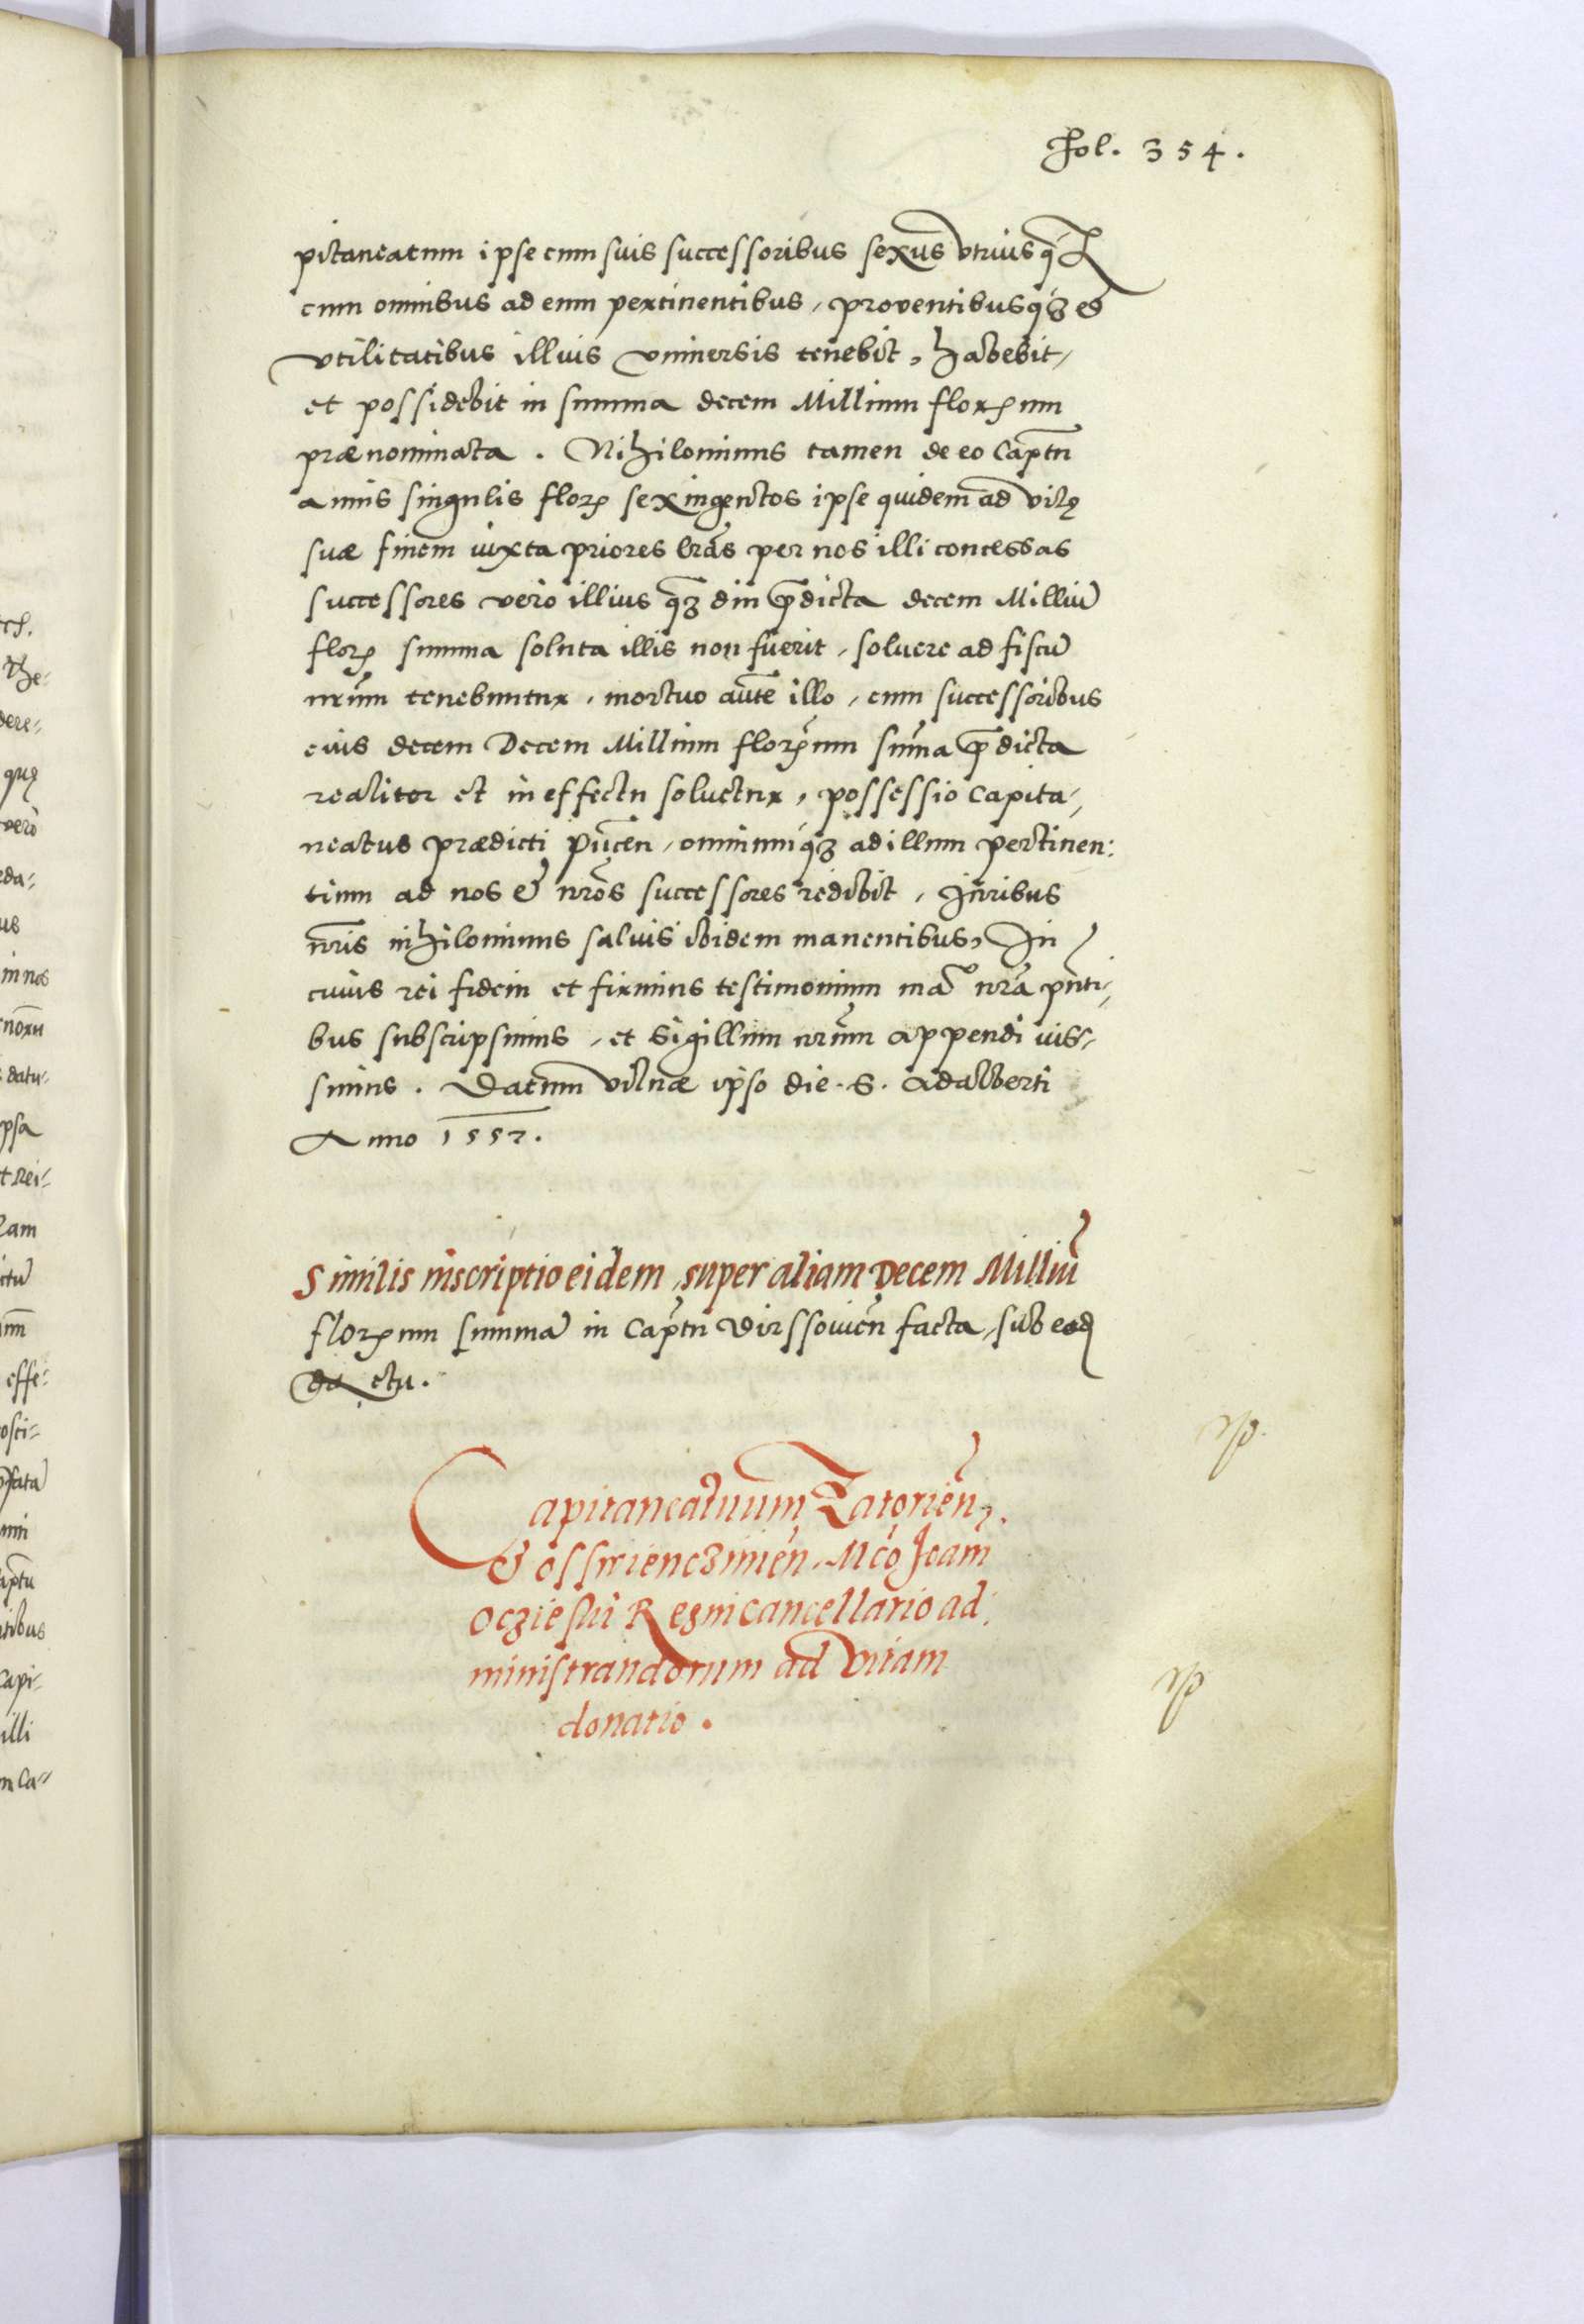 Fol. 354.
pitaneatum ipse cum suis successoribus sexus vtriusq̃
cum omnibus ad eum pertinentibus, proventibusq3 et
vtilitatibus illius vniuersis tenebit, habebit,
et possidebit in summa decem Millium florenum
prænominata. Nihilominus tamen de eo Capñtu
annis singulis floren sexingentos ipse quidem ad vitę
suæ finem iuxta priores lrãs per nos illi concessas
successores vero illius q̃3 diu p̃dicta decem Milliũ
floren summa soluta illis non fuerit, soluere ad fiscũ
nrũm tenebuntur, mortuo autẽ illo, cum successoribus
eius decem Decem Millium florenum sum̃a p̃dicta
realiter et in effectu soluetur, possessio Capita,,
neatus prædicti Pucẽn, omniumq̃3 ad illum pertinen:
tium ad nos & nrõs successores redibit, Iuribus
nrĩs nihilominus saluis ibidem manentibus, In
cuius rei fidem et firmius testimonium mañ nrã pñti,,
bus subscripsimus, et sigillum nrũm appendi iuss,,
simus. Datum vilnæ ipso die. S. Adalberti
Anno 1557.
Similis inscriptio eidem, super aliam Decem Milliũ
florenum summã in Capñtu Virssouiẽn facta, sub eodẽ
da ctu.
Capitaneatuum Zatoriẽn,
& osswienczimẽn, Mcõ Joani
Oczieski Regni cancellario ad:
ministrandorum ad vitam
donatio.